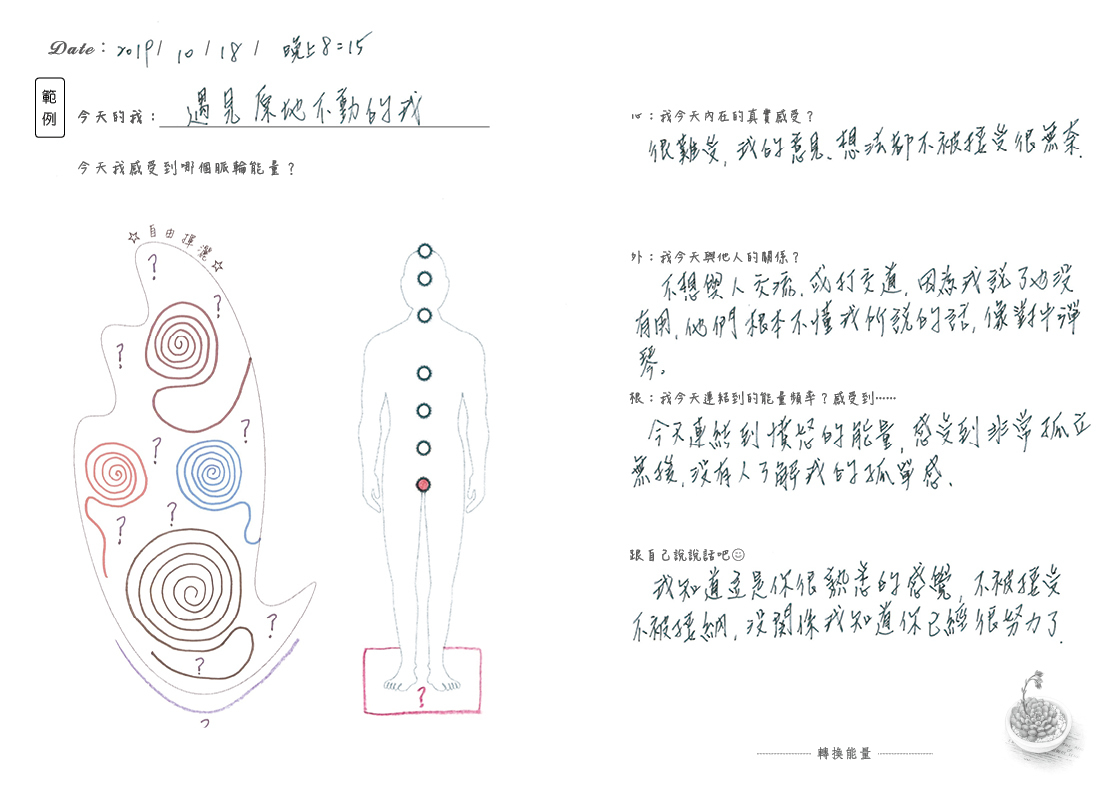 Date：2019/ 10 / 18 / 晚上8:15
範例
今天的我：遇見原地不動的我
今天我感受到哪個脈輪能量？
☆自由揮灑☆
?
?
?
?
?
?
?
?
?
?
?
心：我今天內在的真實感受？
很難受，我的意見、想法都不被接受很無奈.
外：我今天與他人的關係？
不想與人交流，或打交道，因為我說了也沒
有用，他們根本不懂我所說的話，像對牛彈
琴。
根：我今天連結到的能量頻率？感受到……
今天連結到憤怒的能量，感受到非常孤立
無援，沒有人了解我的孤單感.
跟自己說說話吧☺
我知道這是你很熟悉的感覺，不被接受
不被接納，沒關係我知道你已經很努力了.
轉換能量